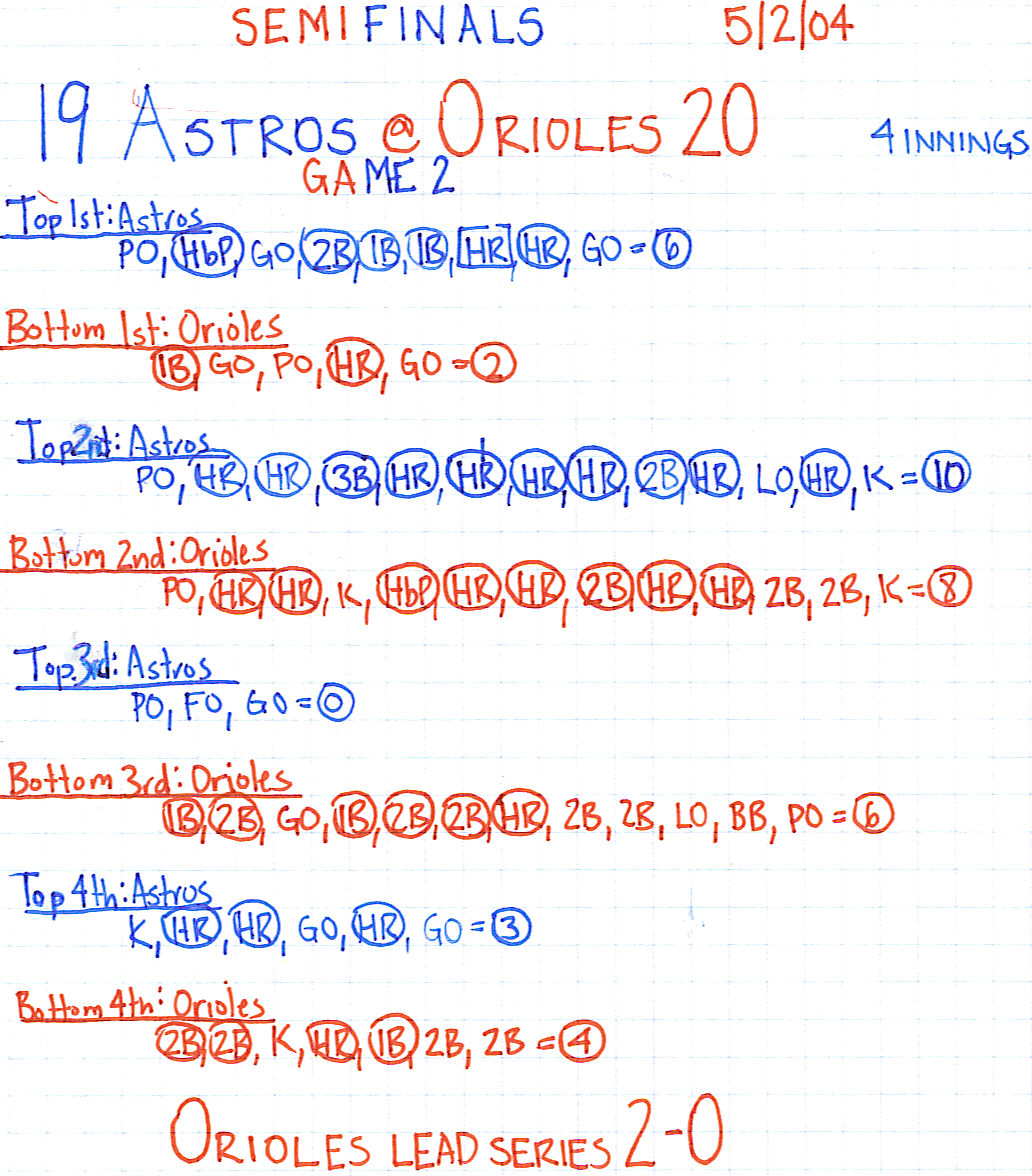 SEMIFINALS 5/2/04
19 ASTROS @ ORIOLES 20 4 INNINGS
GAME 2
Top 1st: Astros
PO, HbP, GO, 2B, 1B, 1B, [HR], HR, GO = 6
Bottom 1st: Orioles
1B, GO, PO, HR, GO = 2
Top 2nd: Astros
PO, HR, HR, 3B, HR, HR, HR, HR, 2B, HR, LO, HR, K = 10
Bottom 2nd: Orioles
PO, HR, HR, K, HbP, HR, HR, 2B, HR, HR, 2B, 2B, K = 8
Top 3rd: Astros
PO, FO, GO = 0
Bottom 3rd: Orioles
1B, 2B, GO, 1B, 2B, 2B, HR, 2B, 2B, LO, BB, PO = 6
Top 4th: Astros
K, HR, HR, GO, HR, GO = 3
Bottom 4th: Orioles
2B, 2B, K, HR, 1B, 2B, 2B = 4
ORIOLES LEAD SERIES 2-0